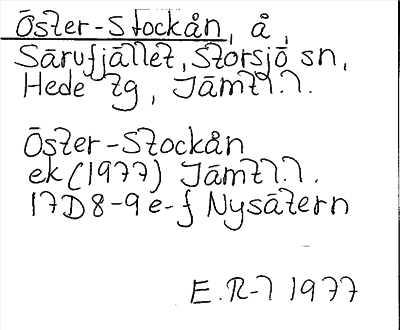 Öster-Stockån, å,
Särvfjället, Storsjö sn,
Hede tg, Jämtl.l.
Öster-Stockån
ek (1977) Jämtl.l.
17D 8-9 e-f Nysätern
E.R-l 1977